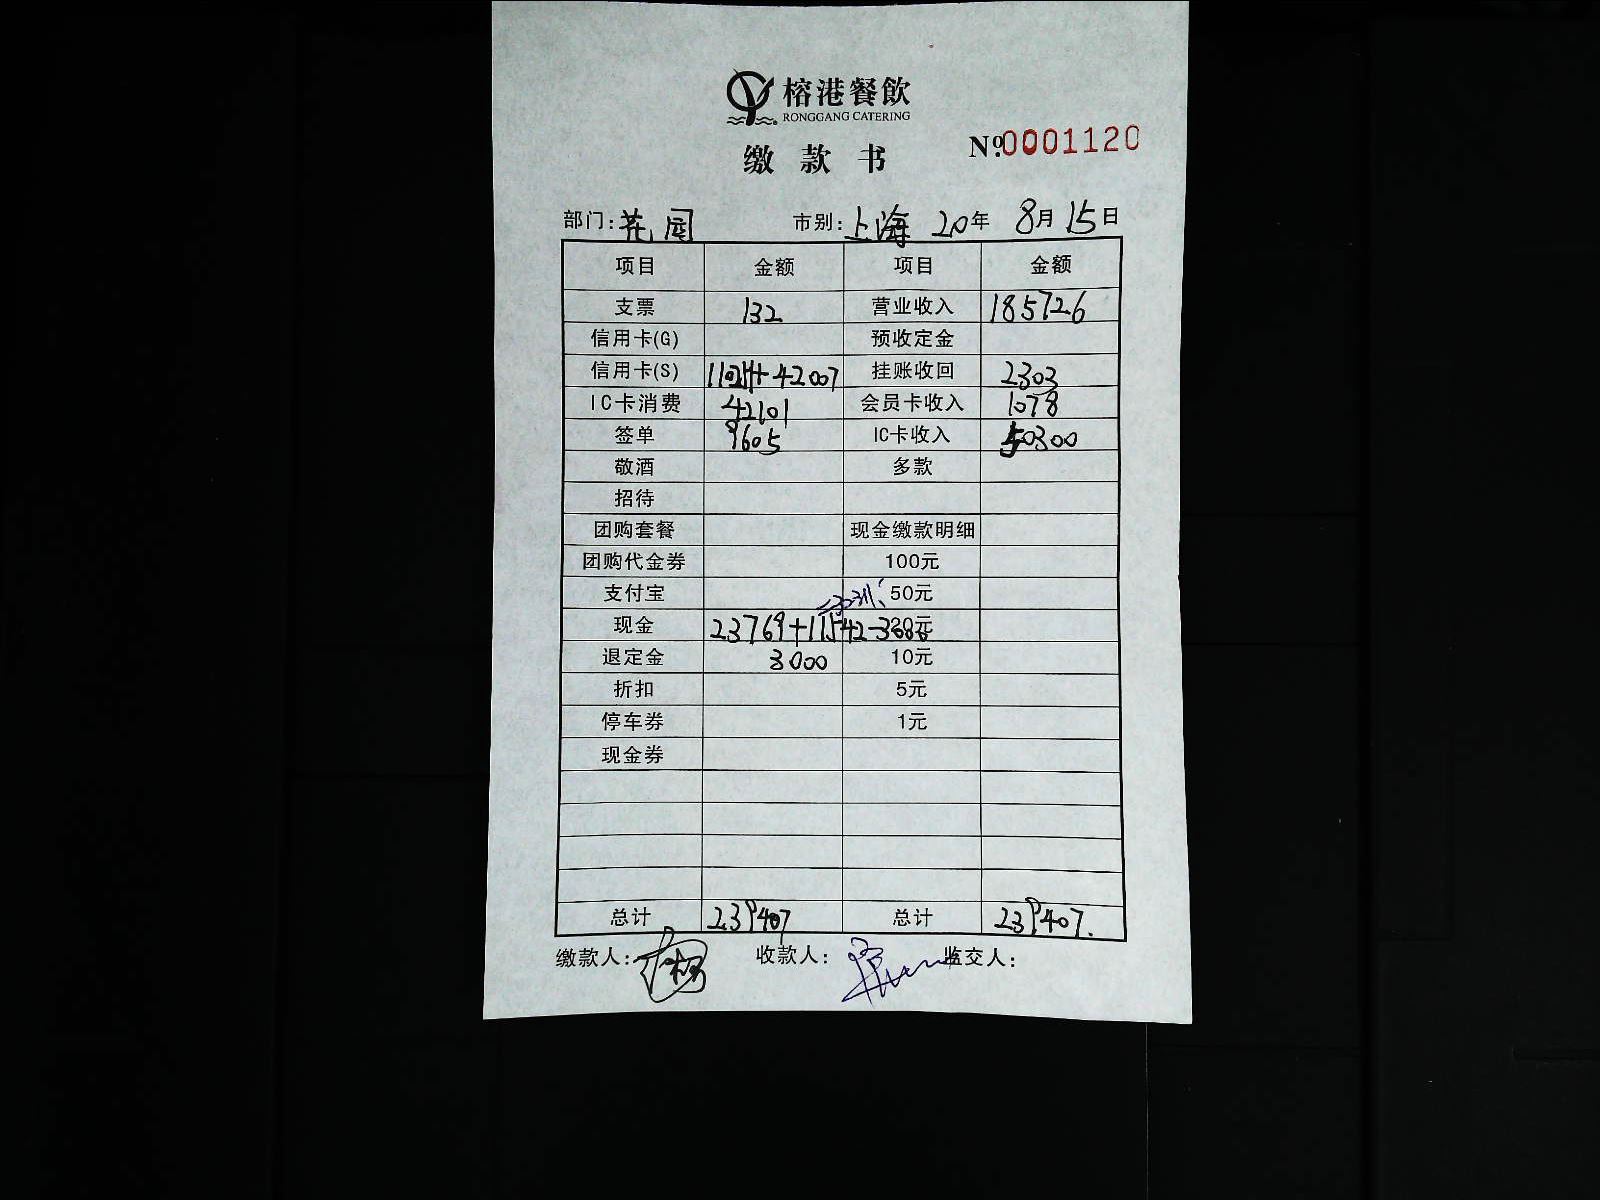 榕港餐飲
RONGGANG CATERING
缴款书
№0001120
部门:花园 市别:上海 20年 8月15日
项目 金额 项目 金额
支票 132 营业收入 185726
信用卡(G) 预收定金
信用卡(S) +42007 挂账收回 2303
IC卡消费 42101 会员卡收入 1078
签单 9605 IC卡收入 50300
敬酒 多款
招待
团购套餐 现金缴款明细
团购代金券 100元
支付宝 50元
现金 23769+11542-3000 20元
退定金 3000 10元
折扣 5元
停车券 1元
现金券
总计 239407 总计 239407.
缴款人: 收款人: 监交人: